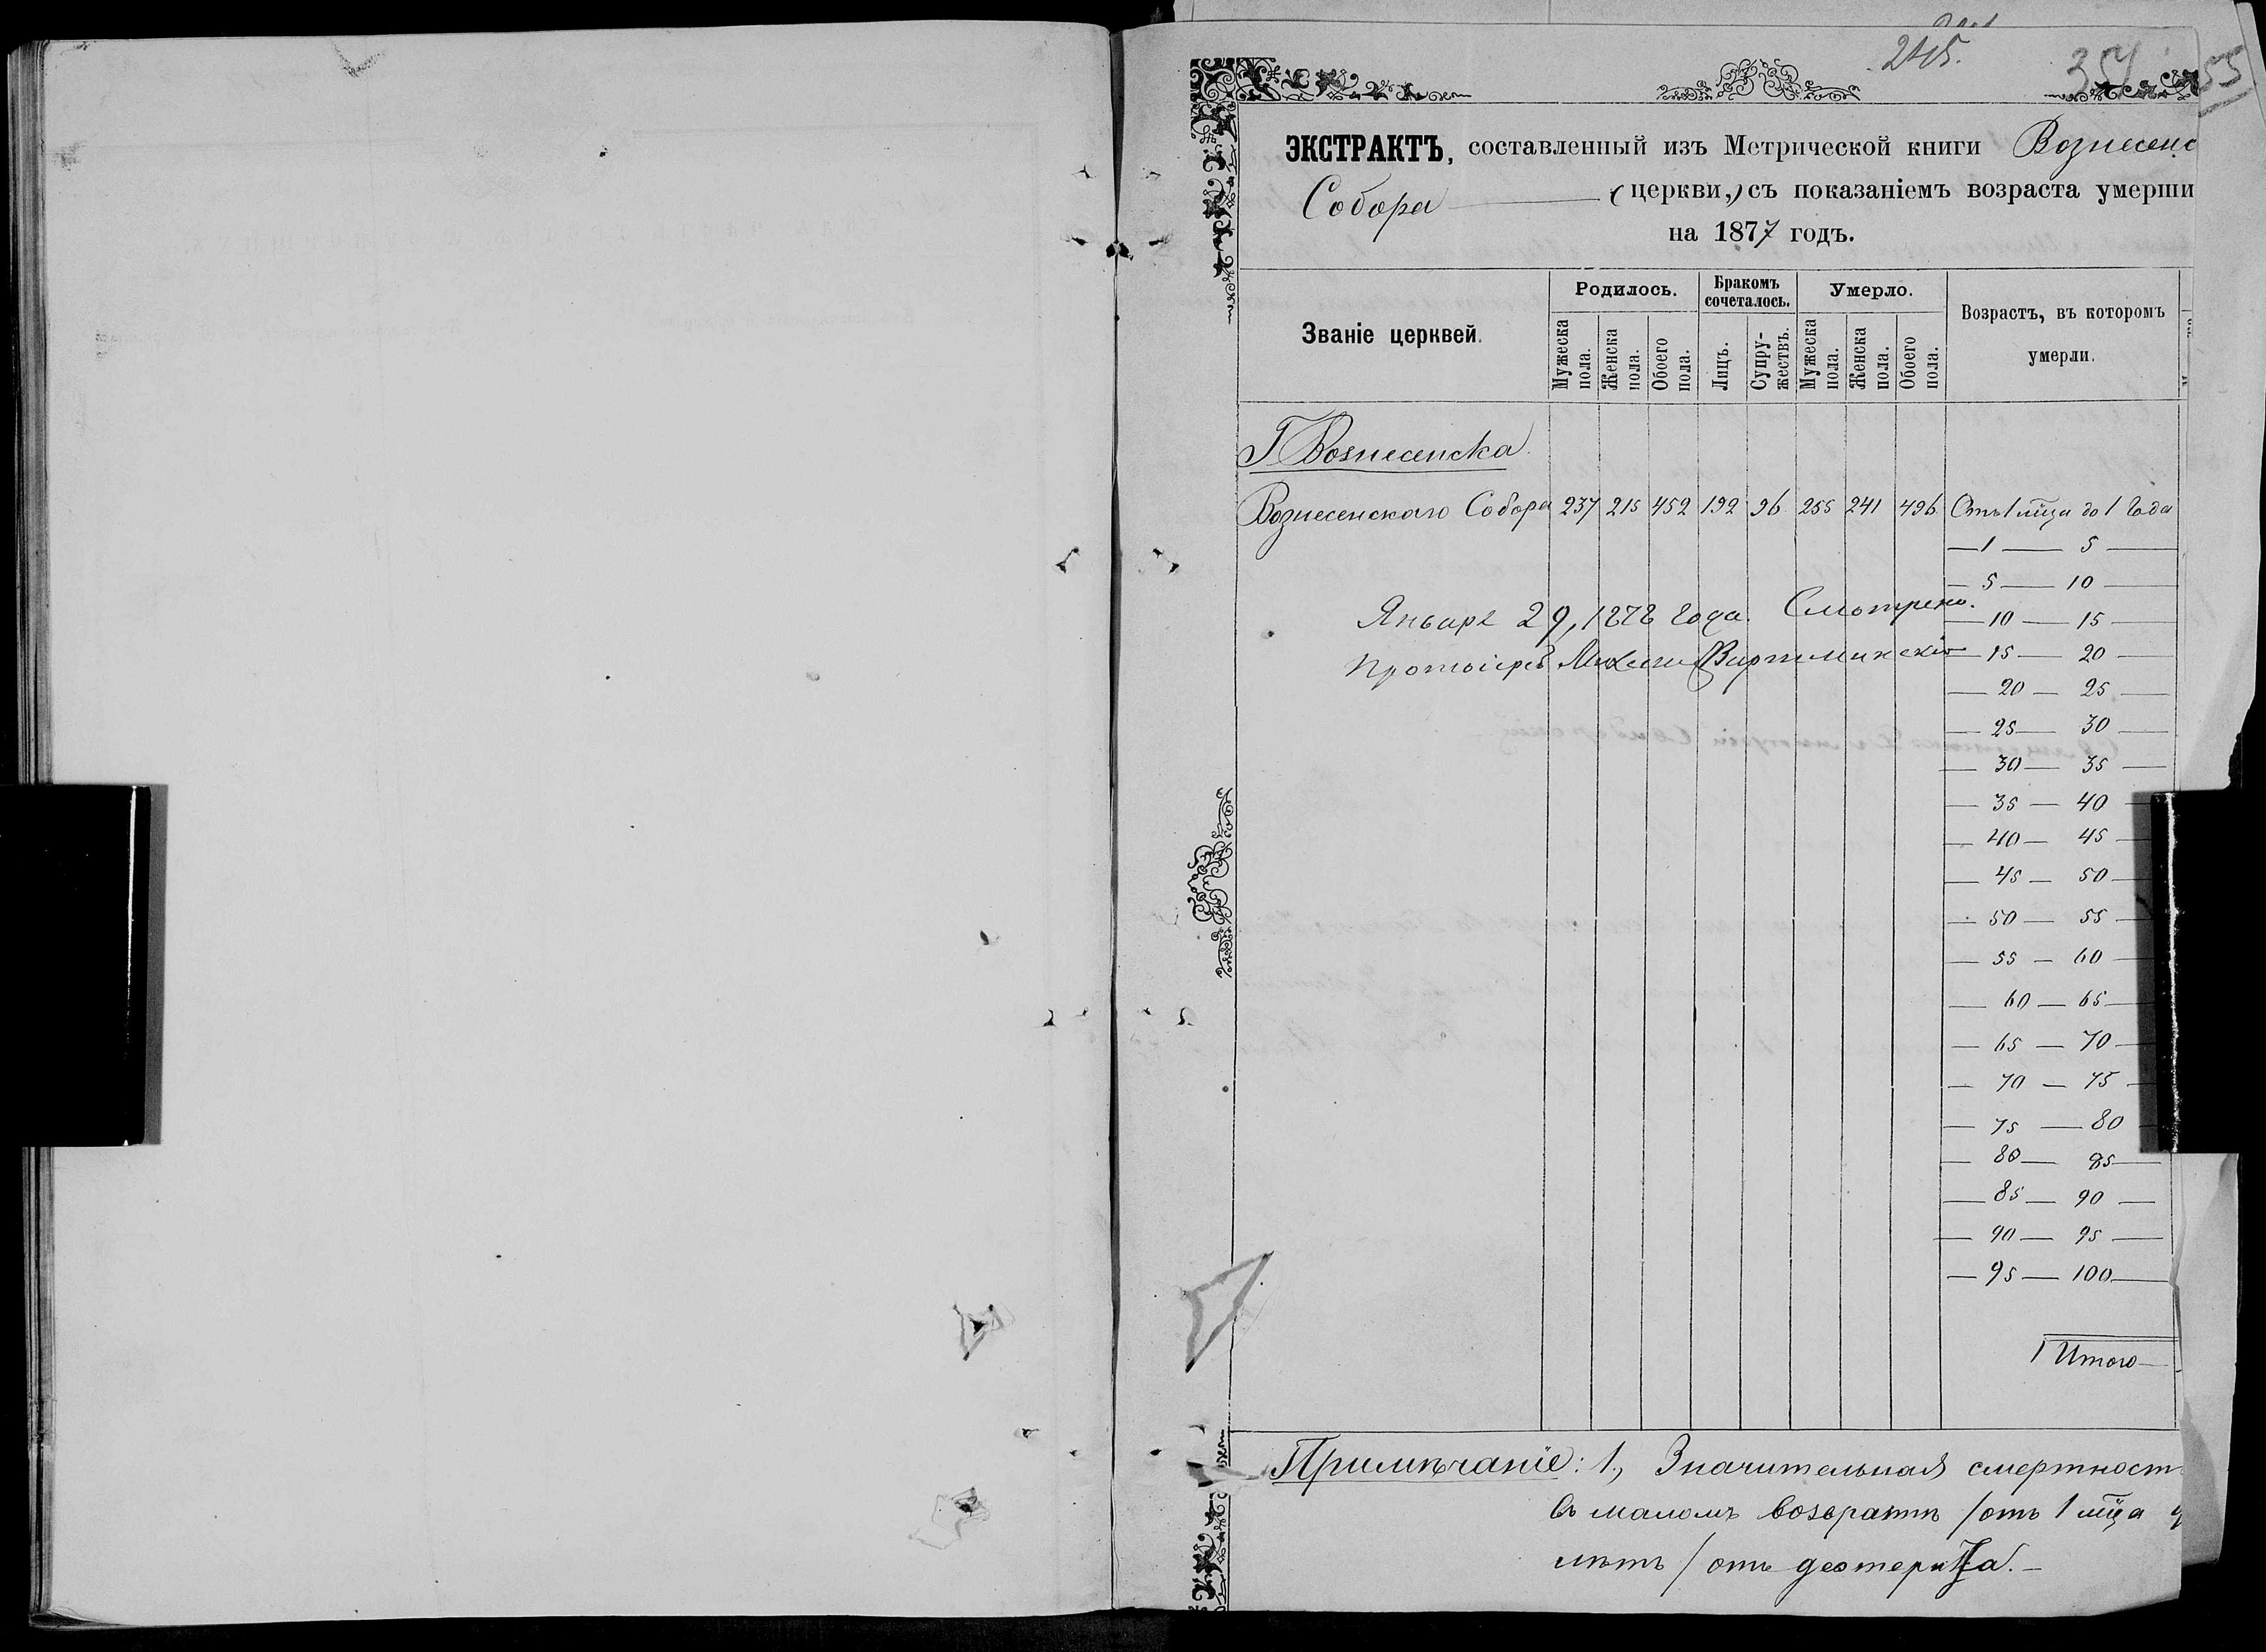 245.
354
55
ЭКСТРАКТЪ, составленный изъ Метрической книги Вознесенс
Собора (церкви,) съ показаніемъ возраста умерши
на 1877 годъ.
Званіе церквей.
Родилось.
Бракомъ сочеталось.
Умерло.
Возрастъ, въ которомъ умерли.
Мужеска пола.
Женска пола.
Обоего пола.
Лицъ.
Супружествъ.
Мужеска пола.
Женска пола.
Обоего пола.
Г Вознесенска
Вознесенскаго Собора 237 215 452 192 96 255 241 496 Отъ 1 мца до 1 года
— 1 — 5 —
— 5 — 10 —
Января 29, 1878 года. Смотрено.
— 10 — 15 —
Протоіерей
— 15 — 20 —
— 20 — 25 —
— 25 — 30 —
— 30 — 35 —
— 35 — 40 —
— 40 — 45 —
— 45 — 50 —
— 50 — 55 —
— 55 — 60 —
— 60 — 65 —
— 65 — 70 —
— 70 — 75 —
— 75 — 80
— 80 — 85 —
— 85 — 90 —
— 90 — 95 —
— 95 — 100 —
Итого —
Примѣчаніе: 1, Значительная смертност
въ маломъ возрастѣ /отъ 1 мца
лѣтъ / отъ дефтерита. —